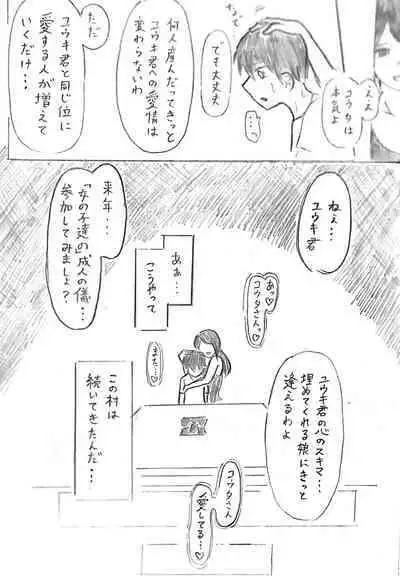 ええ
コウタは
本気よ
なぜって
でも大丈夫
…っ
何人産んだってきっと
ユウキ君への愛情は
変わらないわ
ただ
ユウキ君と同じ位に
愛する人が増えて
いくだけ…
ねぇ…
ユウキ君
来年…
「女の子達」の成人の儀…
参加してみましょ?
ああ…
こうやって
あっ♡
コウタさんっ♡
また…♡
ユウキ君の心のスキマ…
埋めてくれる娘にきっと
逢えるわよ
この村は
続いてきたんだ…
コウタさん
愛してる…♡